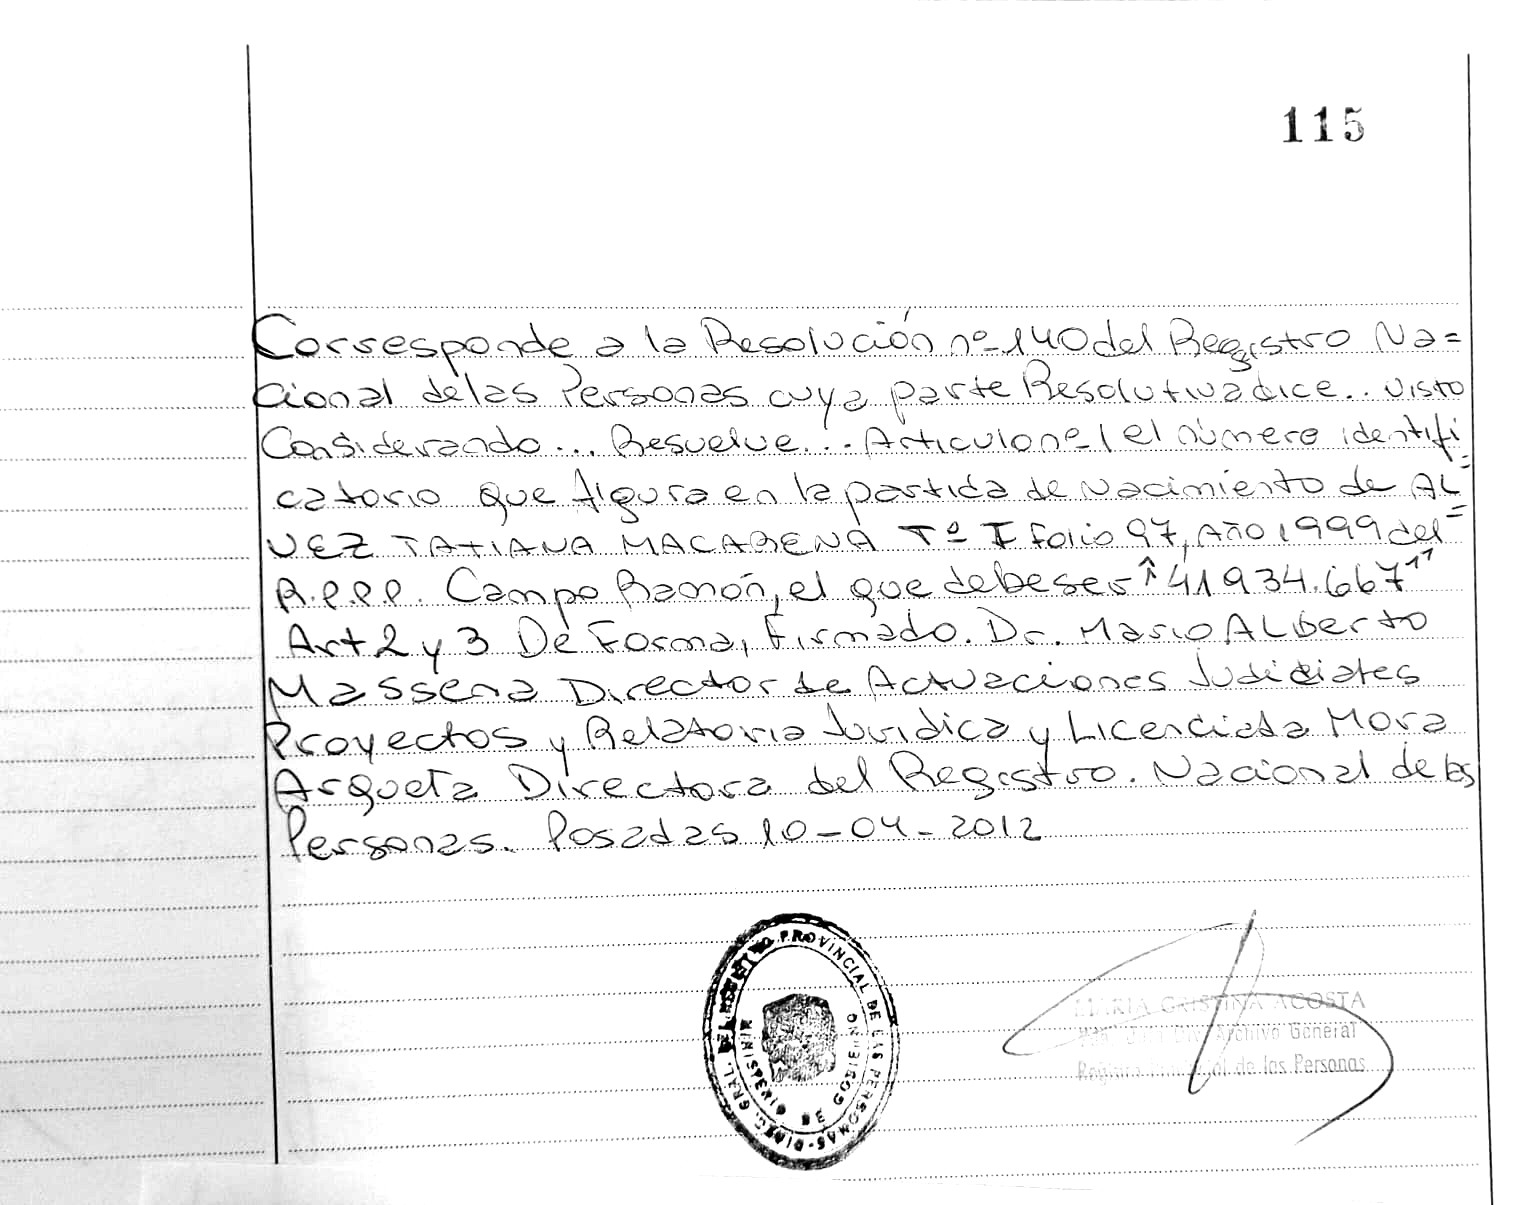 115
Corresponde a la Resolución nº 140 del Registro Na=
cional de las Personas cuya parte Resolutiva dice.. Visto
Considerando... Resuelve... Articulo nº 1 el número identifi=
catorio que figura en la partida de Nacimiento de AL=
VEZ TATIANA MACARENA Tº I folio 97, Año 1999 del
R.P.P.P. Campo Ramón, el que debe ser "41934.667"
Art 2 y 3 De Forma, Firmado. Dr. Mario ALberto
Massena Director de Actuaciones Judiciales
Proyectos y Relatoria Juridica y Licenciada Mora
Arqueta Directora del Registro. Nacional de las
Personas. Posadas 10-04-2012
DIREC. GRAL. DEL REGISTRO PROVINCIAL DE LAS PERSONAS
MINISTERIO DE GOBIERNO
MARIA CRISTINA ACOSTA
Archivo General
Registro Provincial de las Personas